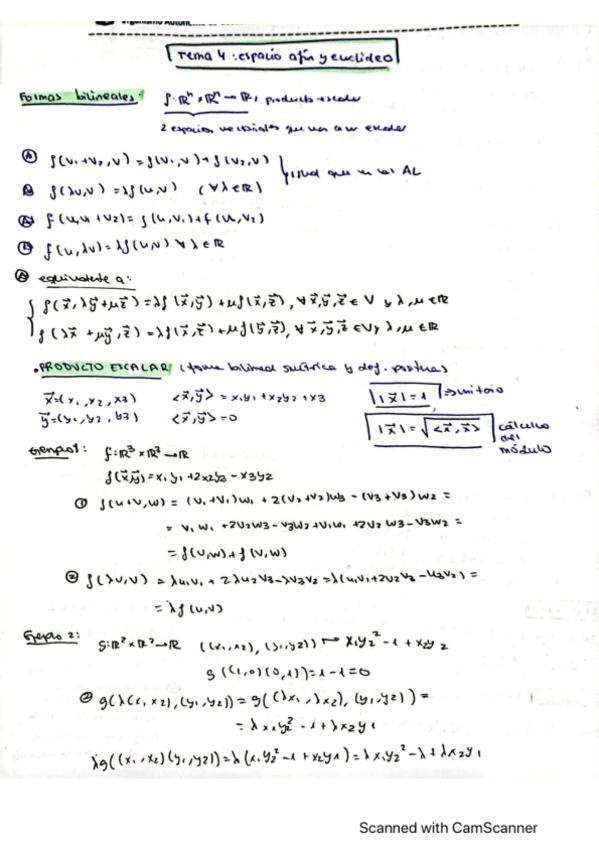 Tema 4: espacio afín y euclídeo
Formas bilineales:
f: ℝⁿ × ℝⁿ → ℝ, producto escalar
2 espacios vectoriales que van a un escalar
a) f(v₁+v₂,v) = f(v₁,v) + f(v₂,v)
igual que en las AL
b) f(λu,v) = λf(u,v) (∀λ∈ℝ)
f(u,v₁+v₂) = f(u,v₁) + f(u,v₂)
f(u,λv) = λf(u,v) ∀λ∈ℝ
equivalente a:
f(x⃗, λy⃗+μz⃗) = λf(x⃗,y⃗) + μf(x⃗,z⃗), ∀x⃗,y⃗,z⃗ ∈ V y λ,μ ∈ℝ
f(λx⃗ + μy⃗, z⃗) = λf(x⃗,z⃗) + μf(y⃗,z⃗), ∀x⃗,y⃗,z⃗ ∈ V y λ,μ ∈ℝ
• PRODUCTO ESCALAR (forma bilineal simétrica y def. positiva)
x⃗=(x₁,x₂,x3) <x⃗,y⃗> = x₁y₁ + x₂y₂ + x3 |x⃗|=1 ⇒ unitario
y⃗=(y₁,y₂,y3) <x⃗,y⃗> = 0 |x⃗| = √<x⃗,x⃗> cálculo del módulo
Ejemplo 1: f: ℝ³ × ℝ³ → ℝ
f(x⃗,y⃗) = x₁y₁ + 2x₂y₃ - x₃y₂
① f(u+v,w) = (u₁+v₁)w₁ + 2(u₂+v₂)w₃ - (u₃+v₃)w₂ =
= u₁w₁ + 2u₂w₃ - u₃w₂ + v₁w₁ + 2v₂w₃ - v₃w₂ =
= f(u,w) + f(v,w)
② f(λu,v) = λu₁v₁ + 2λu₂v₃ - λu₃v₂ = λ(u₁v₁ + 2u₂v₃ - u₃v₂) =
= λf(u,v)
Ejemplo 2: g: ℝ² × ℝ² → ℝ ((x₁,x₂),(y₁,y₂)) ↦ x₁y₂² - 1 + x₂y₂
g((1,0)(0,1)) = 1 - 1 = 0
② g(λ(x₁,x₂),(y₁,y₂)) = g((λx₁,λx₂),(y₁,y₂)) =
= λx₁y₂² - 1 + λx₂y₁
λg((x₁,x₂)(y₁,y₂)) = λ(x₁y₂² - 1 + x₂y₁) = λx₁y₂² - λ + λx₂y₁
Scanned with CamScanner